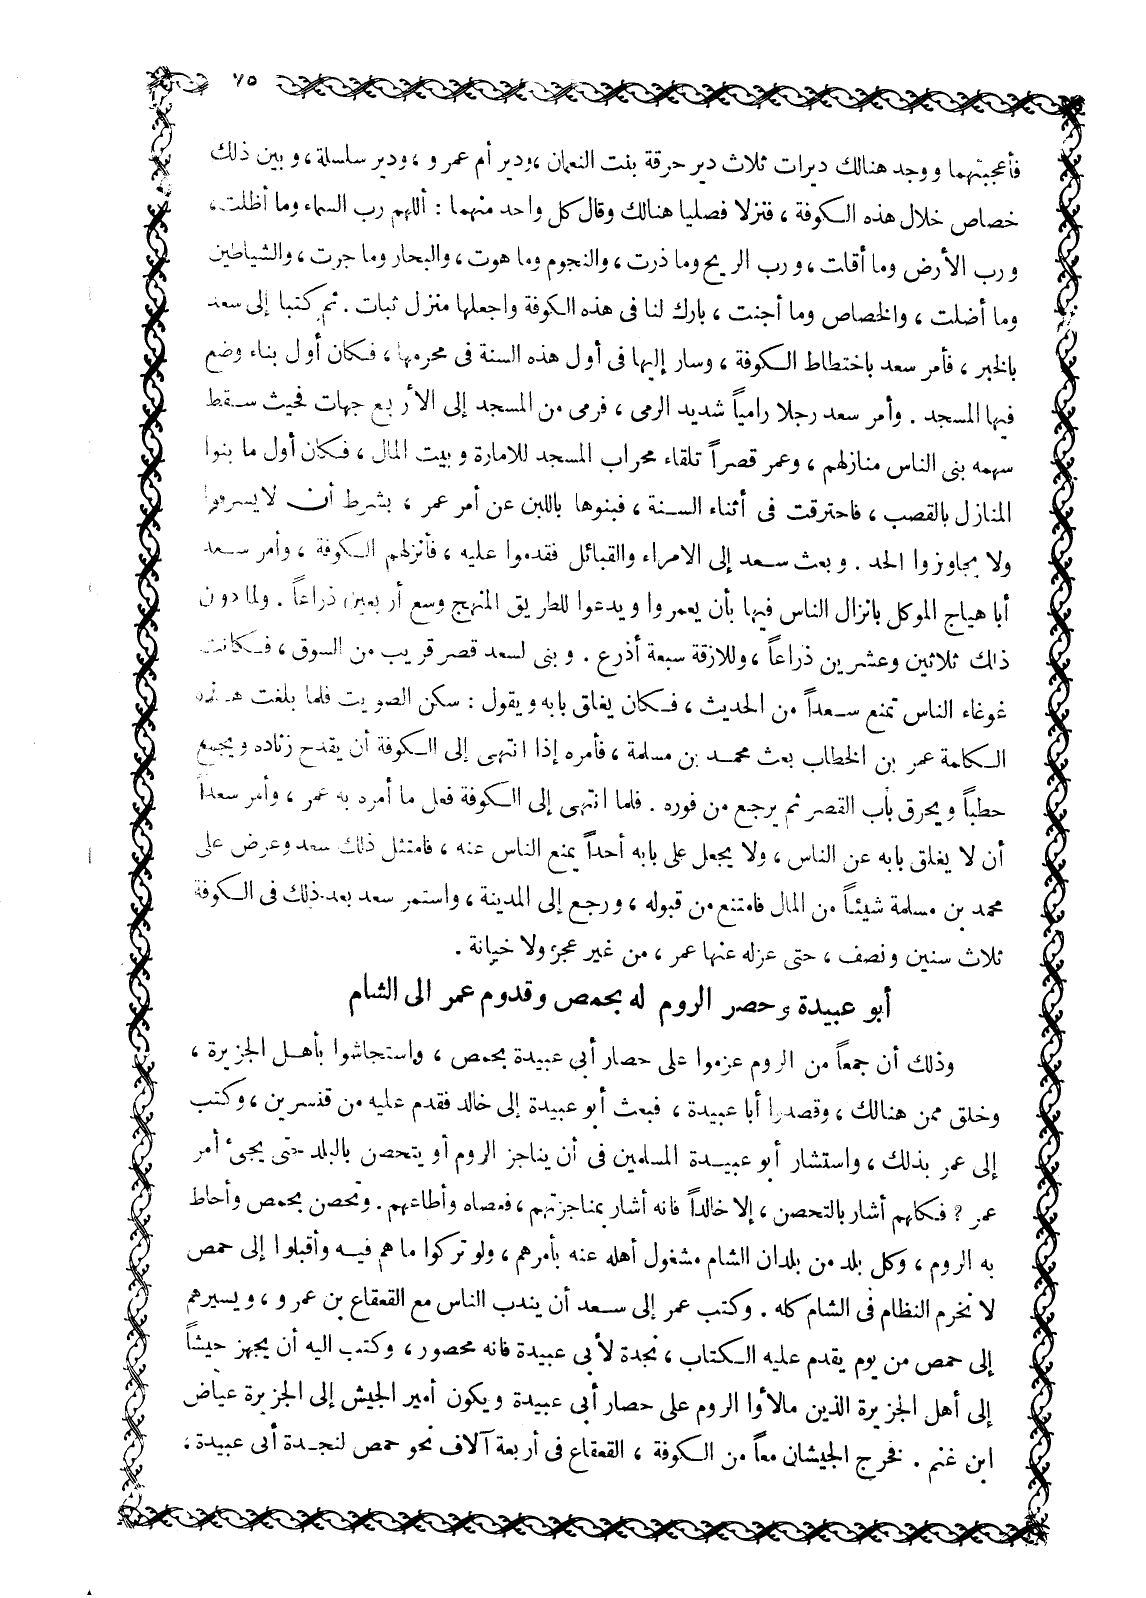 ٧٥
فأعجبتهما ووجد هنالك ديرات ثلاث دير حرقة بنت النعمان ، ودير أم عمرو ، ودير سلسلة ، وبين ذلك
خصاص خلال هذه الكوفة ، فنزلا فصليا هنالك وقال كل واحد منهما : أللهم رب السماء وما أظلت ،
ورب الأرض وما أقلت ، ورب الريح وما ذرت ، والنجوم وما هوت ، والبحار وما جرت ، والشياطين
وما أضلت ، والخصاص وما أجنت ، بارك لنا فى هذه الكوفة واجعلها منزل ثبات . ثم كتبا إلى سعد
بالخبر ، فأمر سعد باختطاط الكوفة ، وسار إليها فى أول هذه السنة فى محرمها ، فكان أول بناء وضع
فيها المسجد . وأمر سعد رجلا رامياً شديد الرمى ، فرمى من المسجد إلى الأربع جهات فحيث سقط
سهمه بنى الناس منازلهم ، وعمر قصراً تلقاء محراب المسجد للامارة وبيت المال ، فكان أول ما بنوا
المنازل بالقصب ، فاحترقت فى أثناء السنة ، فبنوها باللبن عن أمر عمر ، بشرط أن لا يسرفوا
ولا يجاوزوا الحد . وبعث سعد إلى الامراء والقبائل فقدموا عليه ، فأنزلهم الكوفة ، وأمر سعد
أبا هياج الموكل بانزال الناس فيها بأن يعمروا ويدعوا للطريق المنهج وسع أربعين ذراعاً . ولما دون
ذلك ثلاثين وعشرين ذراعاً ، وللازقة سبعة أذرع . وبنى لسعد قصر قريب من السوق ، فكانت
غوغاء الناس تمنع سعداً من الحديث ، فكان يغلق بابه ويقول : سكن الصويت فلما بلغت هذه
الكلمة عمر بن الخطاب بعث محمد بن مسلمة ، فأمره إذا انتهى إلى الكوفة أن يقدح زناده ويجمع
حطباً ويحرق باب القصر ثم يرجع من فوره . فلما انتهى إلى الكوفة فعل ما أمره به عمر ، وأمر سعداً
أن لا يغلق بابه عن الناس ، ولا يجعل على بابه أحداً يمنع الناس عنه ، فامتثل ذلك سعد وعرض على
محمد بن مسلمة شيئاً من المال فامتنع من قبوله ، ورجع إلى المدينة ، واستمر سعد بعد ذلك فى الكوفة
ثلاث سنين ونصف ، حتى عزله عنها عمر ، من غير عجز ولا خيانة .
أبو عبيدة وحصر الروم له بحمص وقدوم عمر الى الشام
وذلك أن جمعاً من الروم عزموا على حصار أبى عبيدة بحمص ، واستجاشوا بأهل الجزيرة ،
وخلق ممن هنالك ، وقصدوا أبا عبيدة ، فبعث أبو عبيدة إلى خالد فقدم عليه من قنسرين ، وكتب
إلى عمر بذلك ، واستشار أبو عبيدة المسلمين فى أن يناجز الروم أو يتحصن بالبلد حتى يجىء أمر
عمر ؟ فكلهم أشار بالتحصن ، إلا خالداً فانه أشار بمناجزتهم ، فعصاه وأطاعهم . وتحصن بحمص وأحاط
به الروم ، وكل بلد من بلدان الشام مشغول أهله عنه بأمرهم ، ولو تركوا ما هم فيه وأقبلوا إلى حمص
لانخرم النظام فى الشام كله . وكتب عمر إلى سعد أن يندب الناس مع القعقاع بن عمرو ، ويسيرهم
إلى حمص من يوم يقدم عليه الكتاب ، نجدة لأبى عبيدة فانه محصور ، وكتب اليه أن يجهز جيشاً
إلى أهل الجزيرة الذين مالأوا الروم على حصار أبى عبيدة ويكون أمير الجيش إلى الجزيرة عياض
ابن غنم . فخرج الجيشان معاً من الكوفة ، القعقاع فى أربعة آلاف نحو حمص لنجدة أبى عبيدة ،